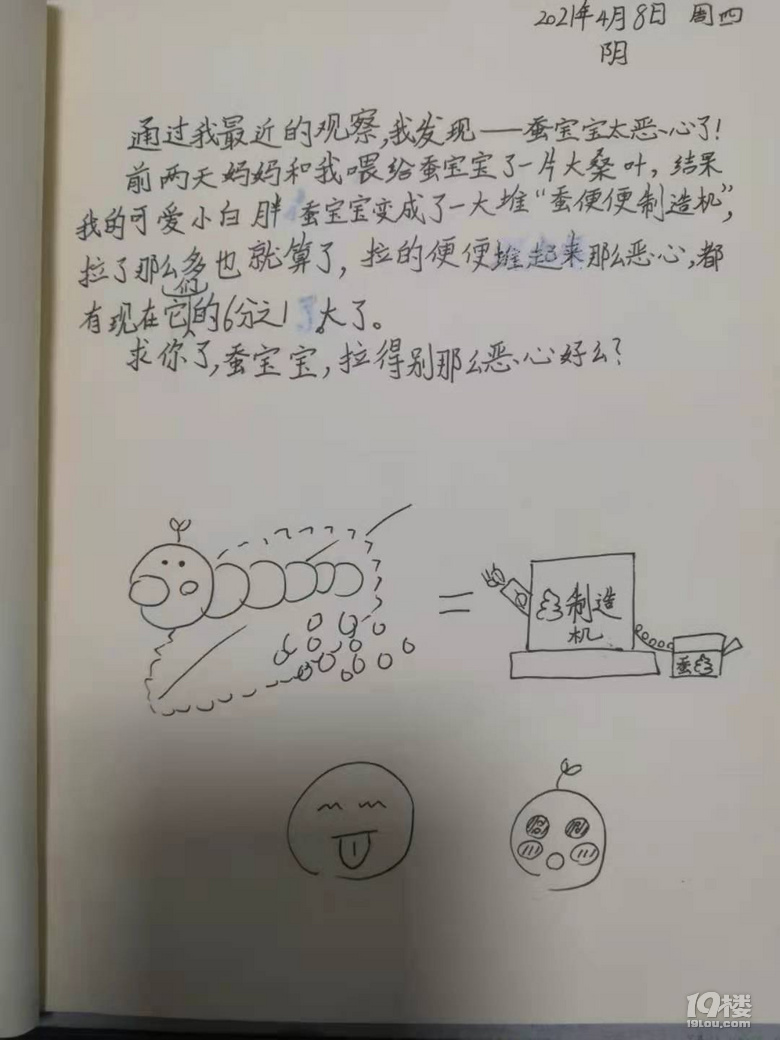 2021年4月8日 周四
阴
通过我最近的观察,我发现——蚕宝宝太恶心了!
前两天妈妈和我喂给蚕宝宝了一片大桑叶,结果
我的可爱小白胖蚕宝宝变成了一大堆“蚕便便制造机”,
拉了那么多也就算了,拉的便便堆起来那么恶心,都
有现在它们的6分之1大了。
求你了,蚕宝宝,拉得别那么恶心好么?
制造
机
蚕
19楼
19lou.com